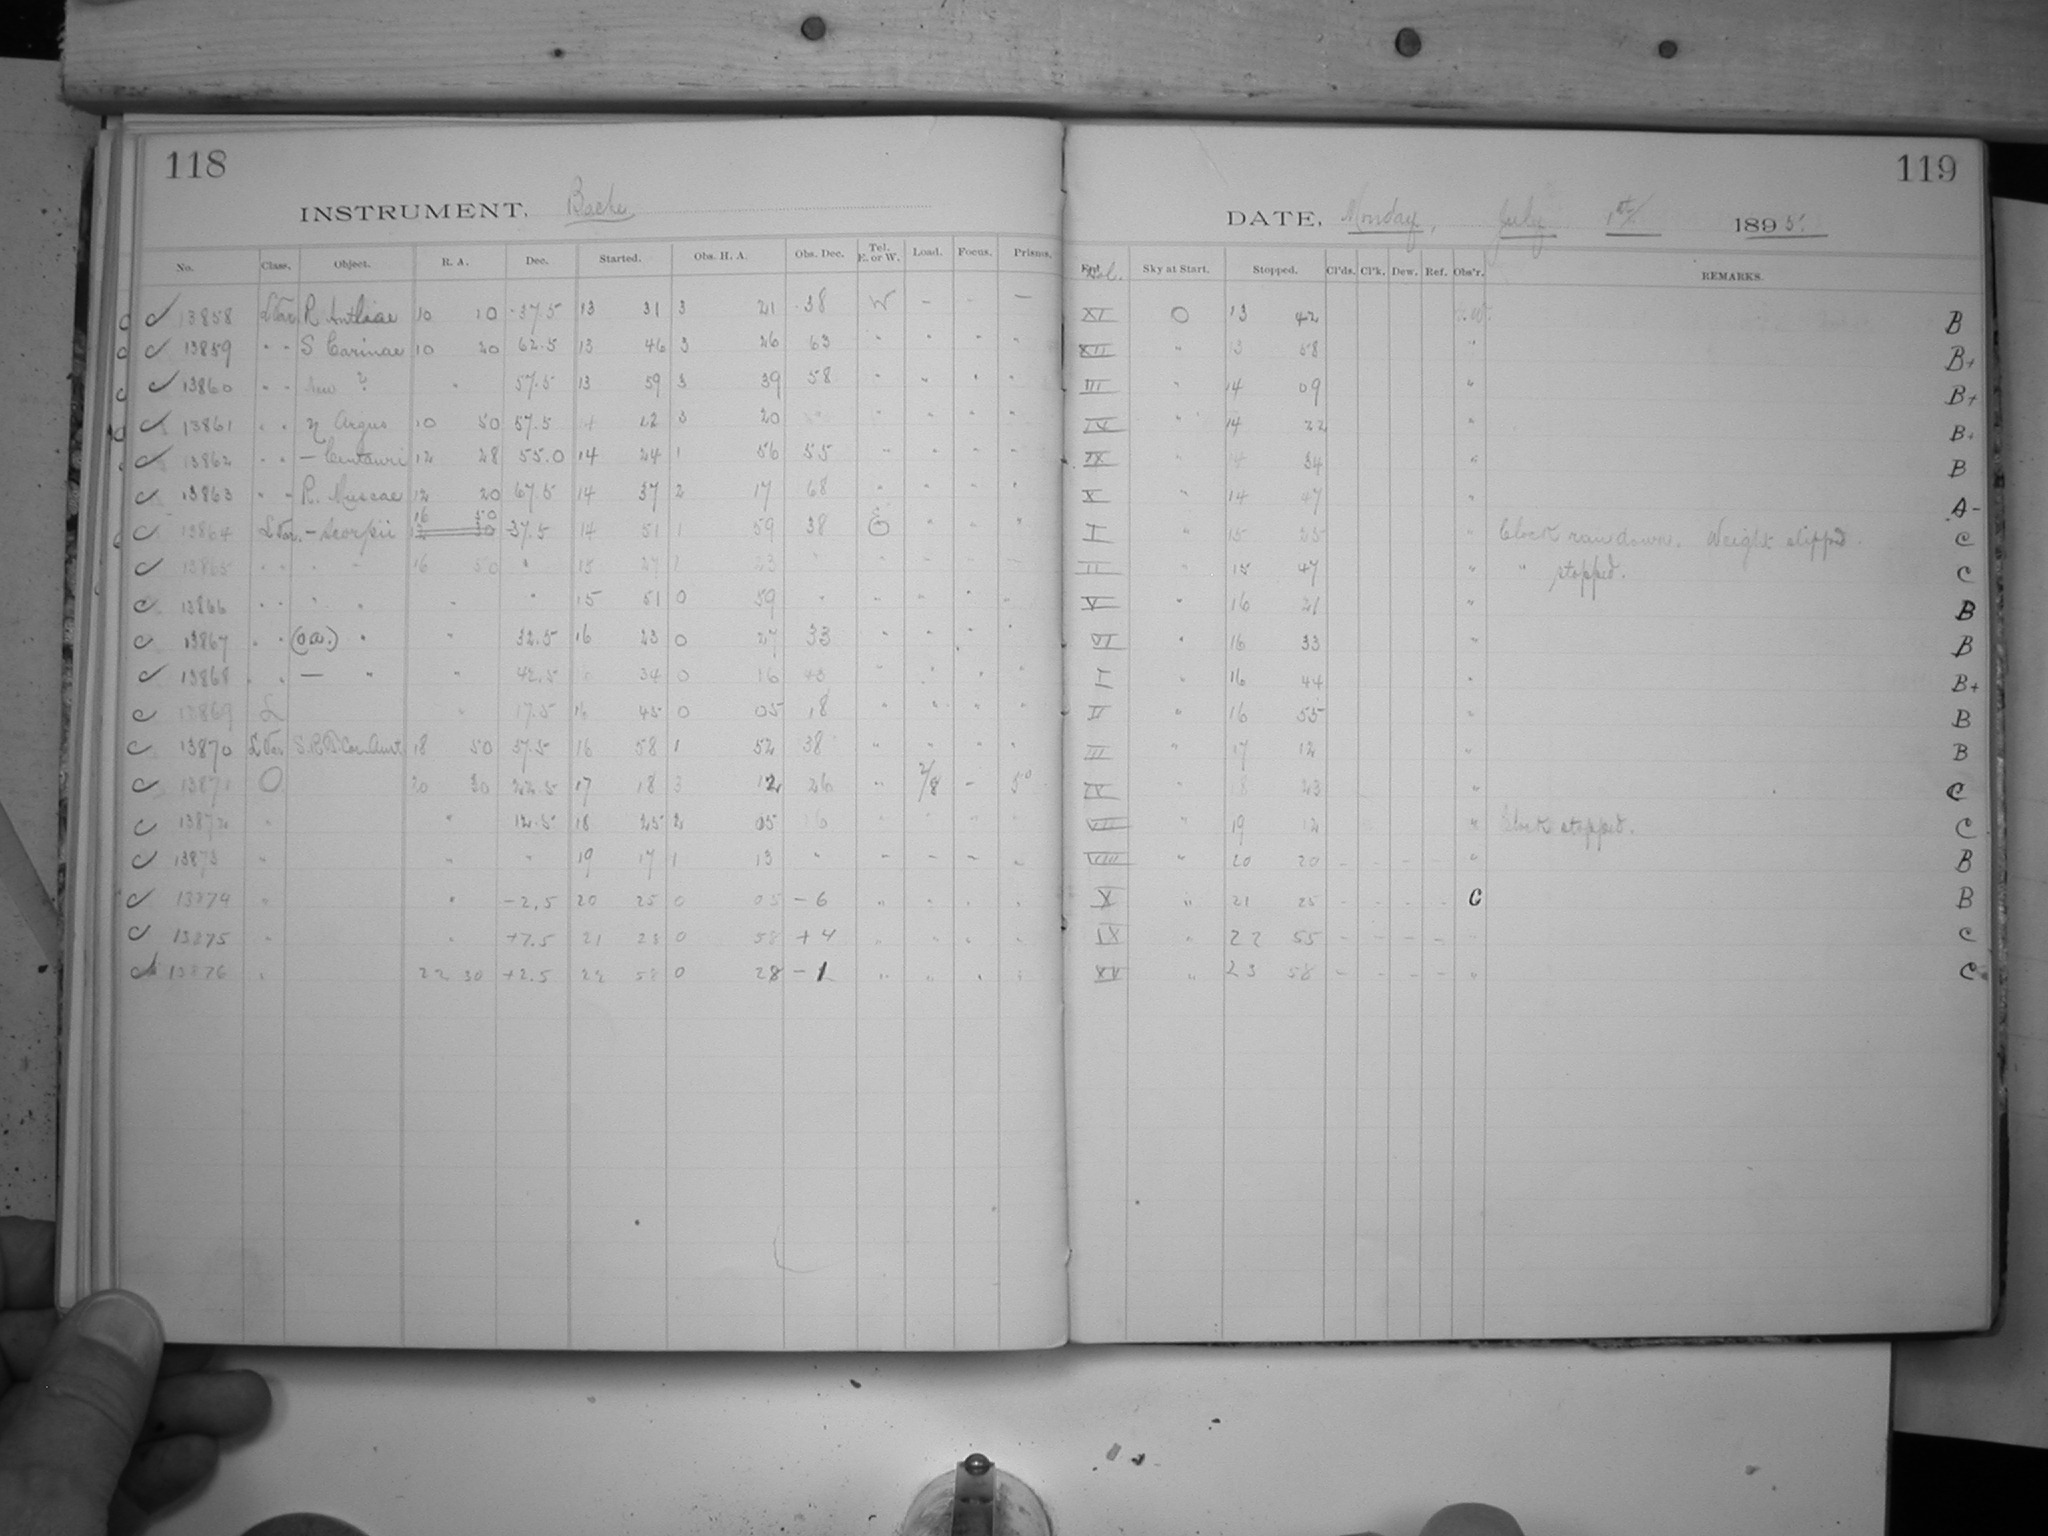 118
INSTRUMENT, Bache
No. Class. Object. R. A. Dec. Started. Obs. H. A. Obs. Dec. Tel. E. or W. Load. Focus. Prisms.
13858 L Var. R Antliae 10 10 -37.5 13 31 3 21 38 W - - -
13859 " " S Carinae 10 20 62.5 13 46 3 26 63 " " " "
13860 " " New ? " 57.5 13 59 3 39 58 " " " "
13861 " " η Argus 10 50 57.5 12 3 20 " " " "
13862 " " - Centauri 12 28 55.0 14 24 1 56 55 " " " "
13863 " " R. Muscae 12 20 67.5 14 37 2 17 68 " " " "
16 50
13864 L Var. - Scorpii -37.5 14 51 1 59 38 E " " "
13865 " " " " 16 50 " 15 27 1 23
13866 " " " " " " 15 51 0 59 " " " " "
13867 " " (oa.) " " 32.5 16 23 0 27 33 " " " "
13868 " " — " " 42.5 16 34 0 16 43 " " " "
13869 L " 17.5 16 45 0 05 18 " " " "
13870 L Var 18 50 37.5 16 58 1 52 38 " " " "
13871 O 20 30 22.5 17 18 3 12 26 " 2/8 - 50
13872 " " 12.5 18 25 2 05 16 " " " "
13873 " " " 19 17 1 13 " " " " "
13874 " " -2.5 20 25 0 05 -6 " " " "
13875 " " +7.5 21 28 0 58 +4 " " " "
13876 " 22 30 +2.5 22 58 0 28 -1 " " " "
119
DATE, Monday, July 1st/ 1895.
Sky at Start. Stopped. Cl'ds. Cl'k. Dew. Ref. Obs'r. REMARKS.
XI O 13 42 B
XII " 13 58 " B+
III " 14 09 " B+
IV " 14 22 " B+
IX " 14 34 " B
X " 14 47 " A-
I " 15 25 " Clock ran down. Weight slipped. C
II " 15 47 " " stopped. C
V " 16 21 " B
VI " 16 33 " B
I " 16 44 " B+
II " 16 55 " B
III " 17 12 " B
IV " 18 23 " C
VII " 19 12 " Clock stopped. C
VIII " 20 20 - - - - " B
X " 21 25 - - - - C B
IX " 22 55 - - - - " C
XV " 23 58 - - - - " C